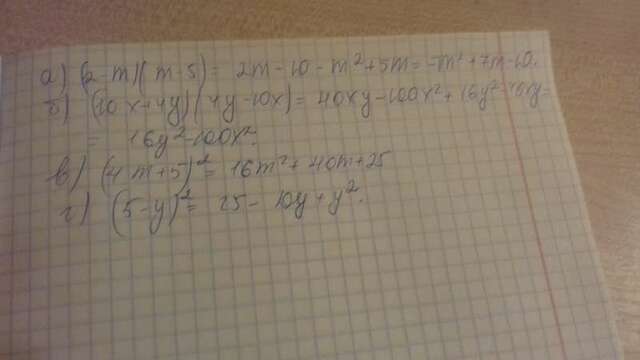 а) (2-m)(m-5)=2m-10-m²+5m=-m²+7m-10.
б) (10x+4y)(4y-10x)=40xy-100x²+16y²-40xy=
=16y²-100x².
в) (4m+5)²=16m²+40m+25
г) (5-y)²=25-10y+y².